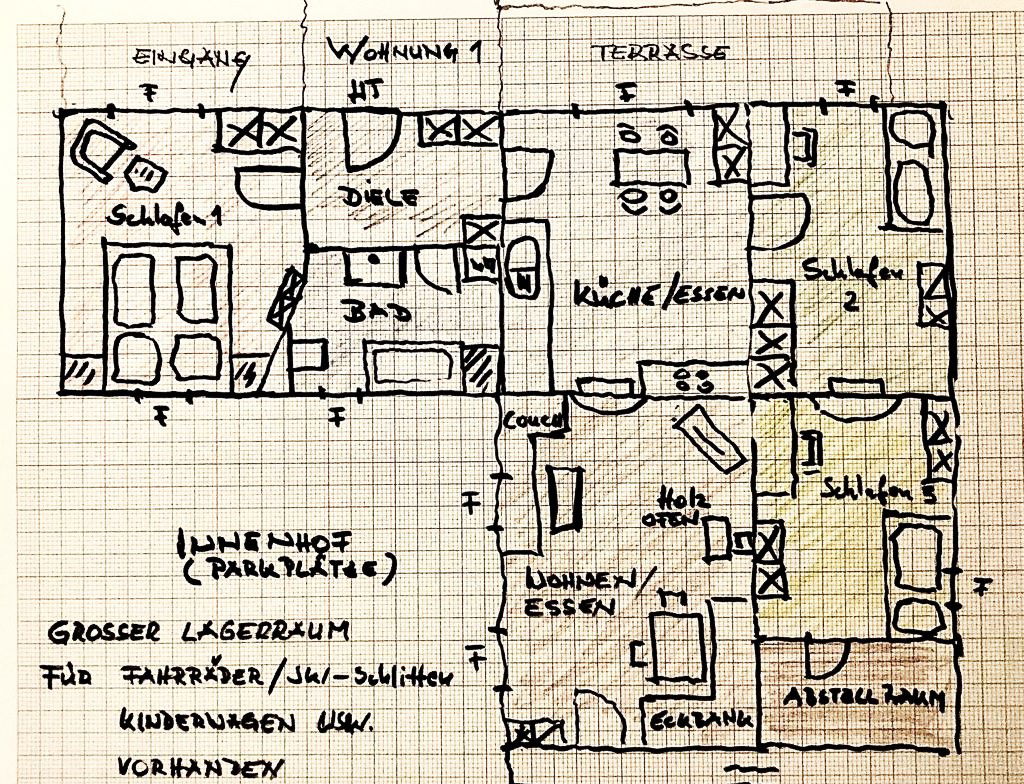 EINGANG
WOHNUNG 1
TERRASSE
F
HT
F
F
Schlafen 1
DIELE
BAD
KÜCHE/ESSEN
Schlafen
2
F
F
COUCH
F
Holz
OFEN
Schlafen 3
INNENHOF
(PARKPLÄTZE)
WOHNEN/
ESSEN
F
GROSSER LAGERRAUM
FÜR FAHRRÄDER/SKI-Schlitten
KINDERWAGEN USW.
VORHANDEN
F
ECKBANK
ABSTELLRAUM